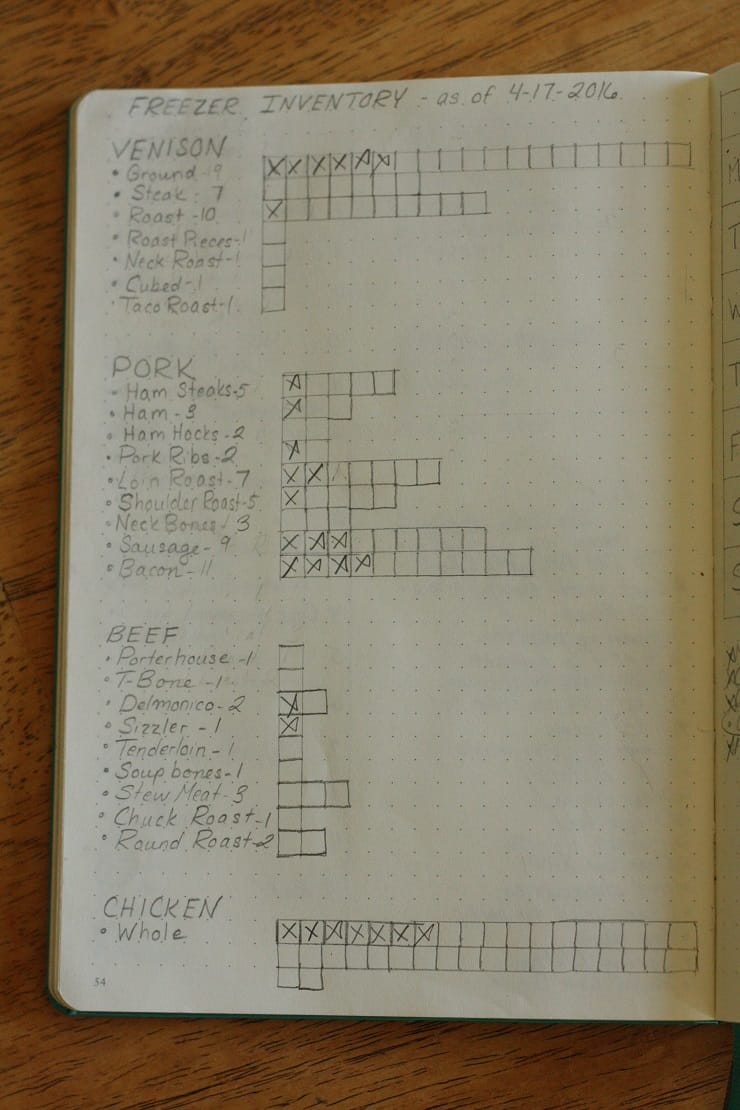 FREEZER INVENTORY - as of 4-17-2016
VENISON
• Ground - 19
• Steak - 7
• Roast - 10
• Roast Pieces - 1
• Neck Roast - 1
• Cubed - 1
• Taco Roast - 1
PORK
• Ham Steaks - 5
• Ham - 3
• Ham Hocks - 2
• Pork Ribs - 2
• Loin Roast - 7
• Shoulder Roast - 5
• Neck Bones - 3
• Sausage - 9
• Bacon - 11
BEEF
• Porterhouse - 1
• T-Bone - 1
• Delmonico - 2
• Sizzler - 1
• Tenderloin - 1
• Soup bones - 1
• Stew Meat - 3
• Chuck Roast - 1
• Round Roast - 2
CHICKEN
• Whole
54
M
T
W
T
F
S
S